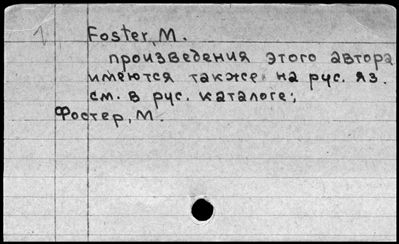 Foster, M.
произведения этого автора
имеются также на рус. яз.
см. в рус. каталоге;
Фостер, М.